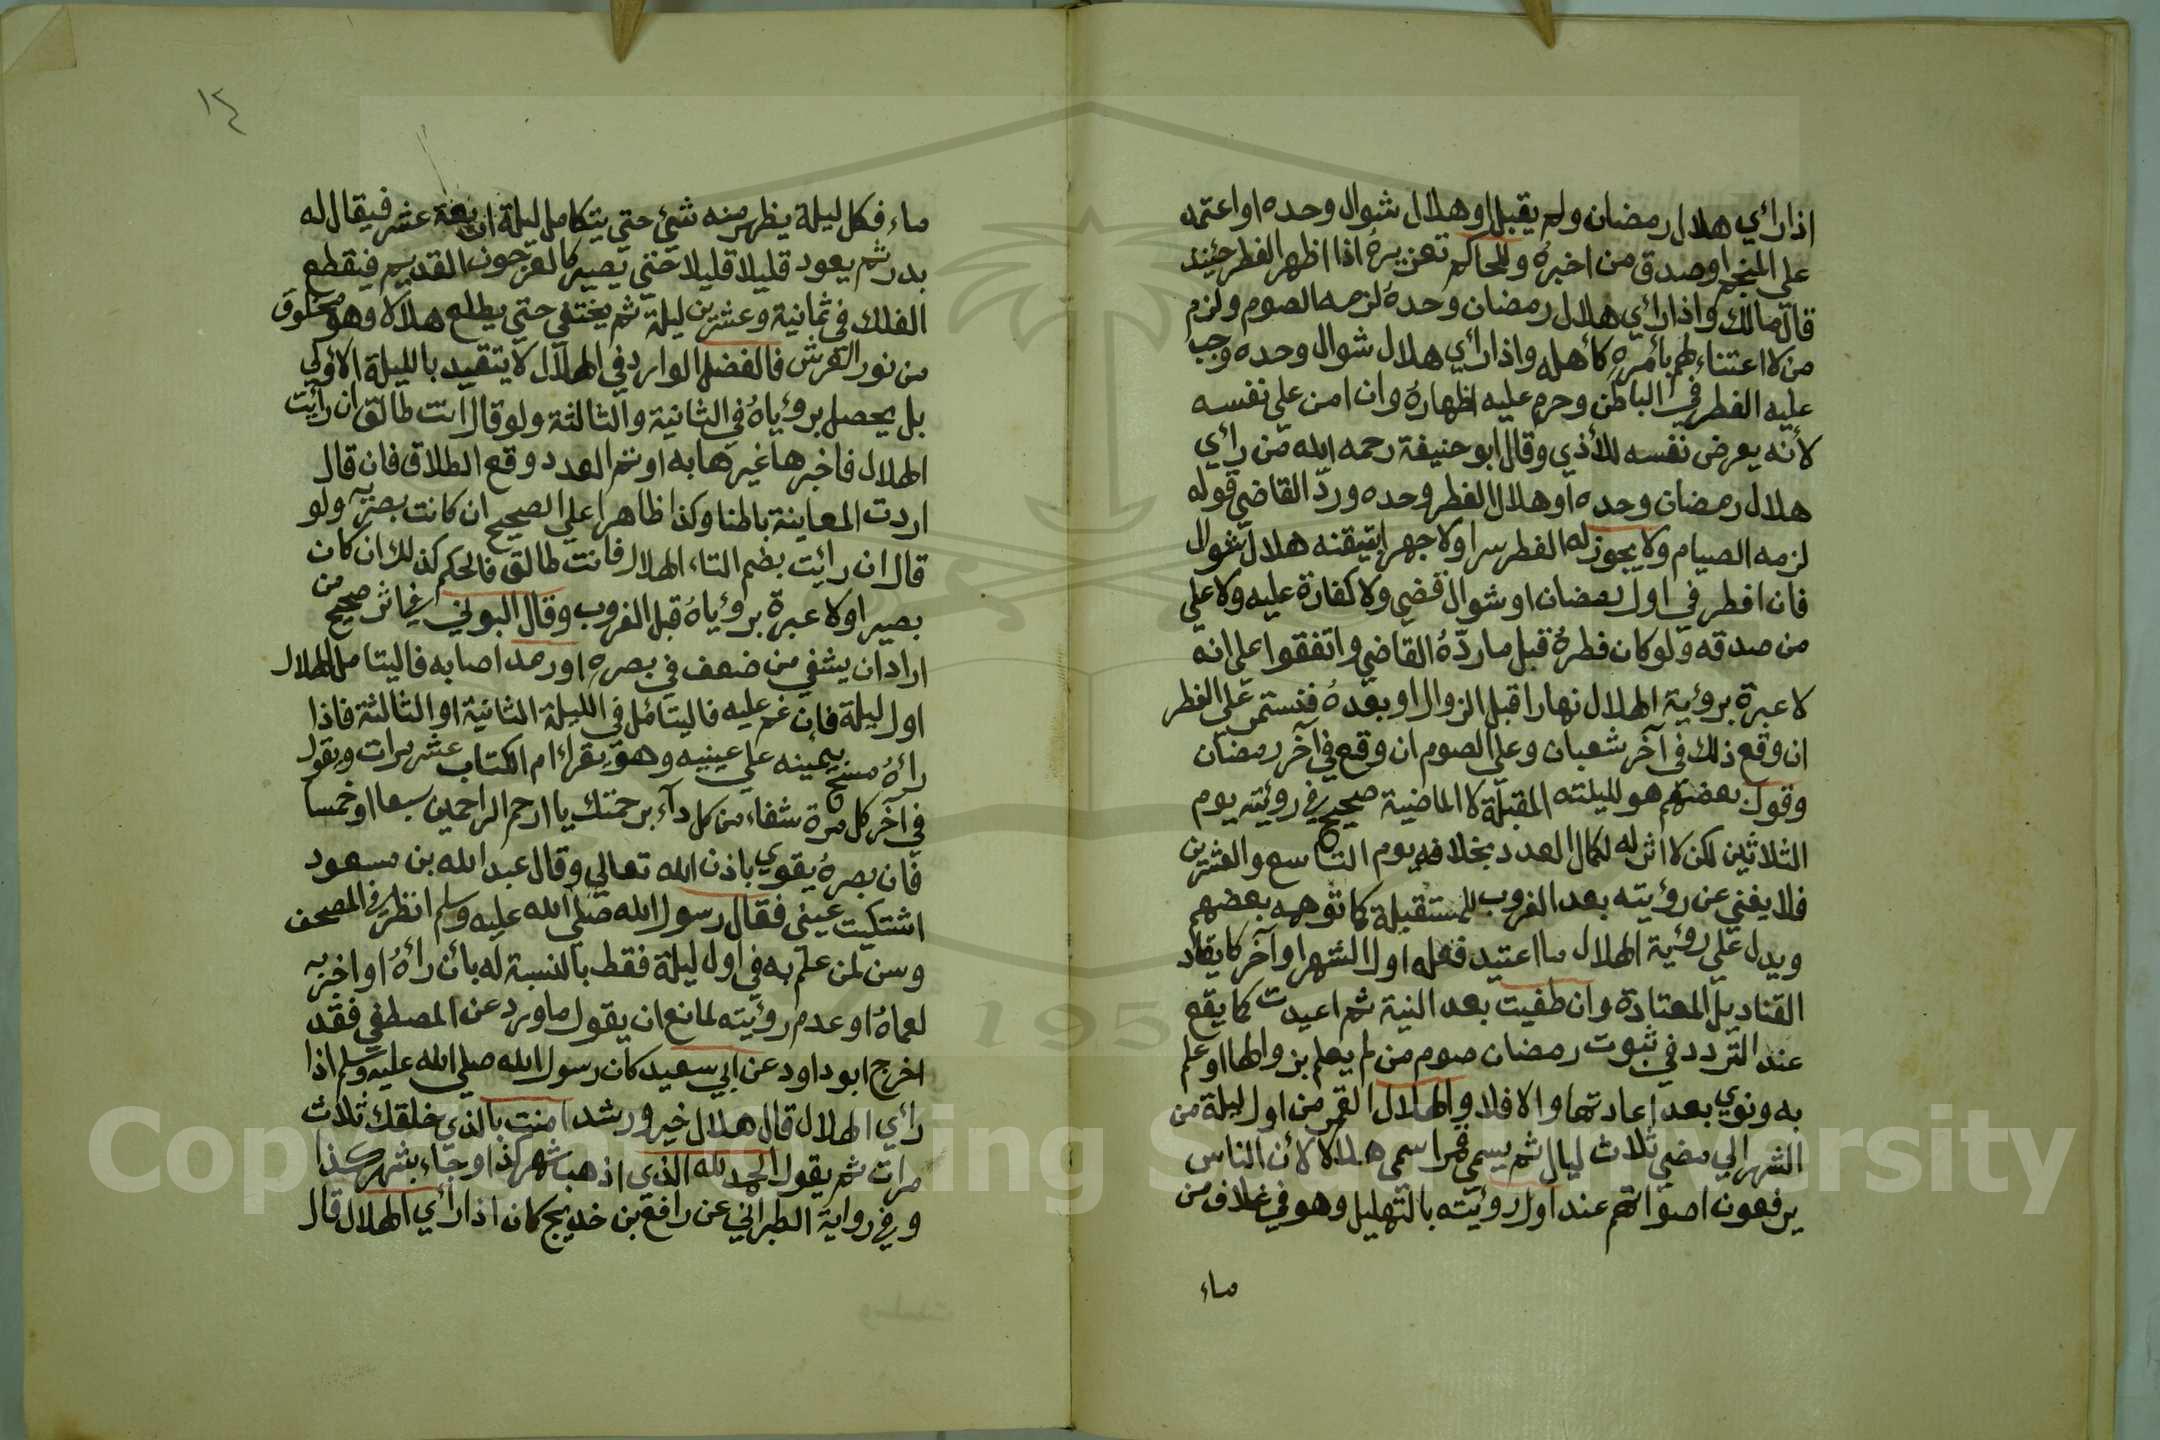 اذا رائي هلال رمضان ولم يقبل او هلال شوال وحده او اعتمد
علي المنجم او صدق من اخبره وللحاكم تعزيره اذا اظهر الفطر حينئذ
قال مالك واذا رائي هلال رمضان وحده لزمه الصوم ولزم
من لا اعتناء لهم بأمره كأهله واذا رائي هلال شوال وحده وجب
عليه الفطر في الباطن وحرم عليه اظهاره وان امن علي نفسه
لأنه يعرض نفسه للأذي وقال ابو حنيفة رحمه الله من رائي
هلال رمضان وحده او هلال الفطر وحده وردّ القاضي قوله
لزمه الصيام ولا يجوز له الفطر سرا ولا جهرا لتيقنه هلال شوال
فان افطر في اول رمضان او شوال قضي ولا كفارة عليه ولا علي
من صدقه ولو كان فطره قبل ما ردّه القاضي واتفقوا علي انه
لا عبرة بروءية الهلال نهارا قبل الزوال او بعده فنستمر علي الفطر
ان وقع ذلك في آخر شعبان وعلي الصوم ان وقع في آخر رمضان
وقول بعضهم هو لليلته المقبلة لا الماضية صحيح في روءيته يوم
الثلاثين لكن لا اثر له لكمال العدد بخلافه يوم التاسع والعشرين
فلا يغني عن روءيته بعد الغروب للمستقبلة كما توهمه بعضهم
ويدل علي روءية الهلال ما اعتيد فعله اول الشهر او آخر كايقاد
القناديل المعتادة وان طفيت بعد النية ثم اعيدت كما يقع
عند التردد في ثبوت رمضان صوم من لم يعلم بزوالها او علم
به ونوي بعد اعادتها والا فلا والهلال القمر من اول ليلة من
الشهر الي مضي ثلاث ليال ثم يسمي قمرا سمي هلالا لأن الناس
يرفعون اصواتهم عند اول روءيته بالتهليل وهو في غلاف من
ماء
١٤
ماء فكل ليلة يظهر منه شئ حتي يتكامل ليلة اربعة عشر فيقال له
بدر ثم يعود قليلا قليلا حتي يصير كالعرجون القديم فيقطع
الفلك في ثمانية وعشرين ليلة ثم يختفي حتي يطلع هلالا وهو مخلوق
من نور العرش فالفضل الوارد في الهلال لا يتقيد بالليلة الاولي
بل يحصل بروءياه في الثانية والثالثة ولو قال انت طالق ان رأيت
الهلال فاخبرها غيرها به او تم العدد وقع الطلاق فان قال
اردت المعاينة باطنا وكذا ظاهرا علي الصحيح ان كانت بصيرة ولو
قال ان رائيت بضم التاء الهلال فانت طالق فالحكم كذلك ان كان
بصيرا ولا عبرة بروءياه قبل الغروب وقال البوني في اثر صحيح من
اراد ان يشفي من ضعف في بصره او رمد اصابه فاليتامل الهلال
اول ليلة فان غم عليه فاليتائمل في الليلة الثانية او الثالثة فاذا
رأه مسح بيمينه علي عينيه وهو يقراء ام الكتاب عشر مرات ويقول
في آخر كل مرة شفاء من كل دآء برحمتك يا ارحم الراحمين سبعا او خمسا
فان بصره يقوي باذن الله تعالي وقال عبد الله بن مسعود
اشتكيت عيني فقال رسول الله صلي الله عليه وسلم انظر في المصحف
وسن لمن علم به في اول ليلة فقط بالنسبة له بأن رأه او اخبر به
لعماه او عدم روءيته لمانع ان يقول ما ورد عن المصطفي فقد
اخرج ابو داود عن ابي سعيد كان رسول الله صلي الله عليه وسلم اذا
رائي الهلال قال هلال خير ورشد امنت بالذي خلقك ثلاث
مرات ثم يقول الحمد لله الذي اذهب شهر كذا وجاء بشهر كذا
وفي رواية الطبراني عن رافع بن خديج كان اذا رائي الهلال قال
Copyright © King Saud University
1957